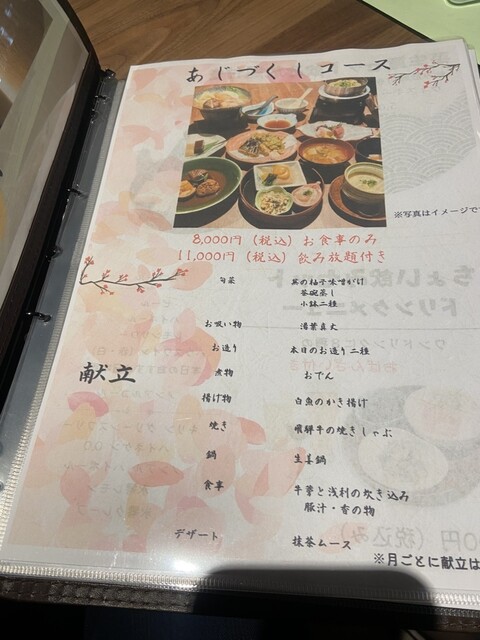 あじづくしコース
※写真はイメージで
8,000円（税込）お食事のみ
11,000円（税込）飲み放題付き
献立
旬菜 菜の柚子味噌がけ
茶碗蒸し
小鉢二種
お吸い物 湯葉真丈
お造り 本日のお造り二種
煮物 おでん
揚げ物 白魚のかき揚げ
焼き 飛騨牛の焼きしゃぶ
鍋 生姜鍋
食事 牛蒡と浅利の炊き込み
豚汁・香の物
デザート 抹茶ムース
※月ごとに献立は